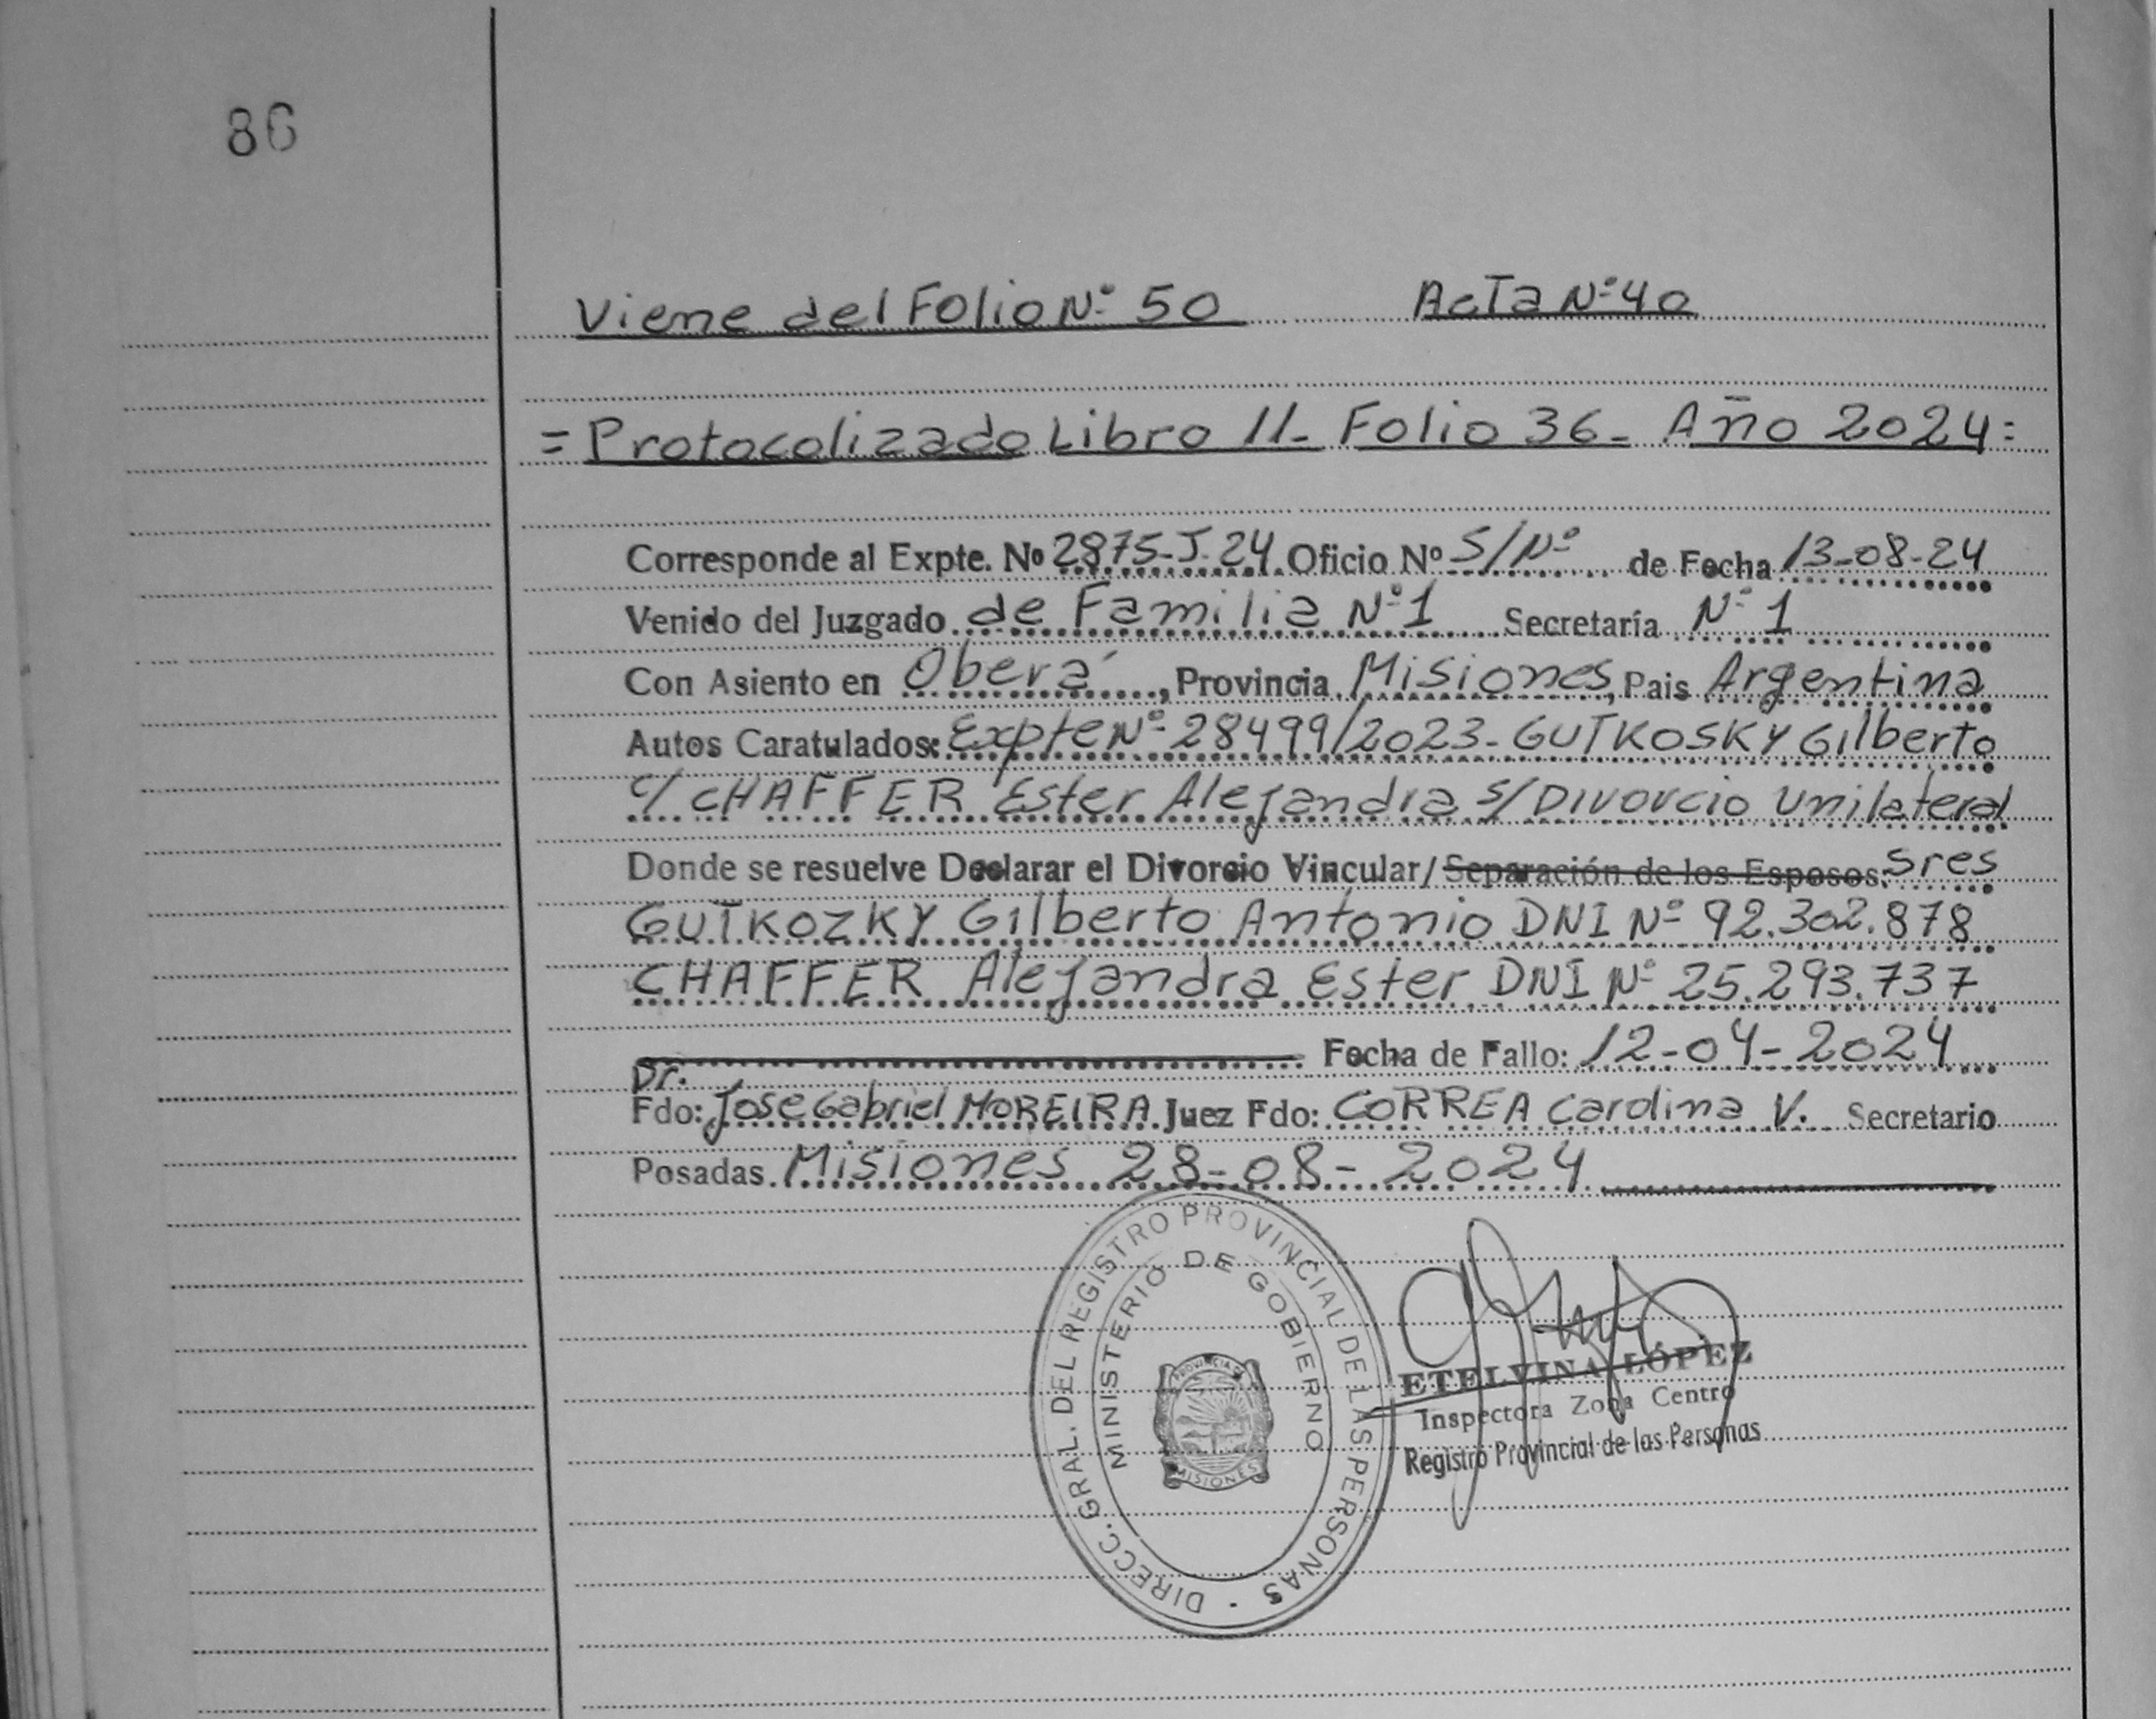 86
Viene del Folio Nº 50 Acta Nº 40
= Protocolizado Libro 11- Folio 36- Año 2024=
Corresponde al Expte. Nº 2875-J-24 Oficio Nº S/Nº de Fecha 13-08-24
Venido del Juzgado de Familia Nº 1 Secretaría Nº 1
Con Asiento en Oberá, Provincia Misiones, Pais Argentina
Autos Caratulados: Expte Nº 28499/2023- GUTKOSKY Gilberto
c/ CHAFFER Ester Alejandra s/ Divorcio Unilateral
Donde se resuelve Declarar el Divorcio Vincular/ Separación de los Esposos: Sres
GUTKOZKY Gilberto Antonio DNI Nº 92.302.878
CHAFFER Alejandra Ester DNI Nº 25.293.737
Fecha de Fallo: 12-04-2024
Dr.
Fdo: Jose Gabriel MOREIRA Juez Fdo: CORREA Carolina V. Secretario
Posadas Misiones 28-08-2024
DIRECC. GRAL. DEL REGISTRO PROVINCIAL DE LAS PERSONAS
MINISTERIO DE GOBIERNO
PROVINCIA DE
MISIONES
ETELVINA LÓPEZ
Inspectora Zona Centro
Registro Provincial de las Personas